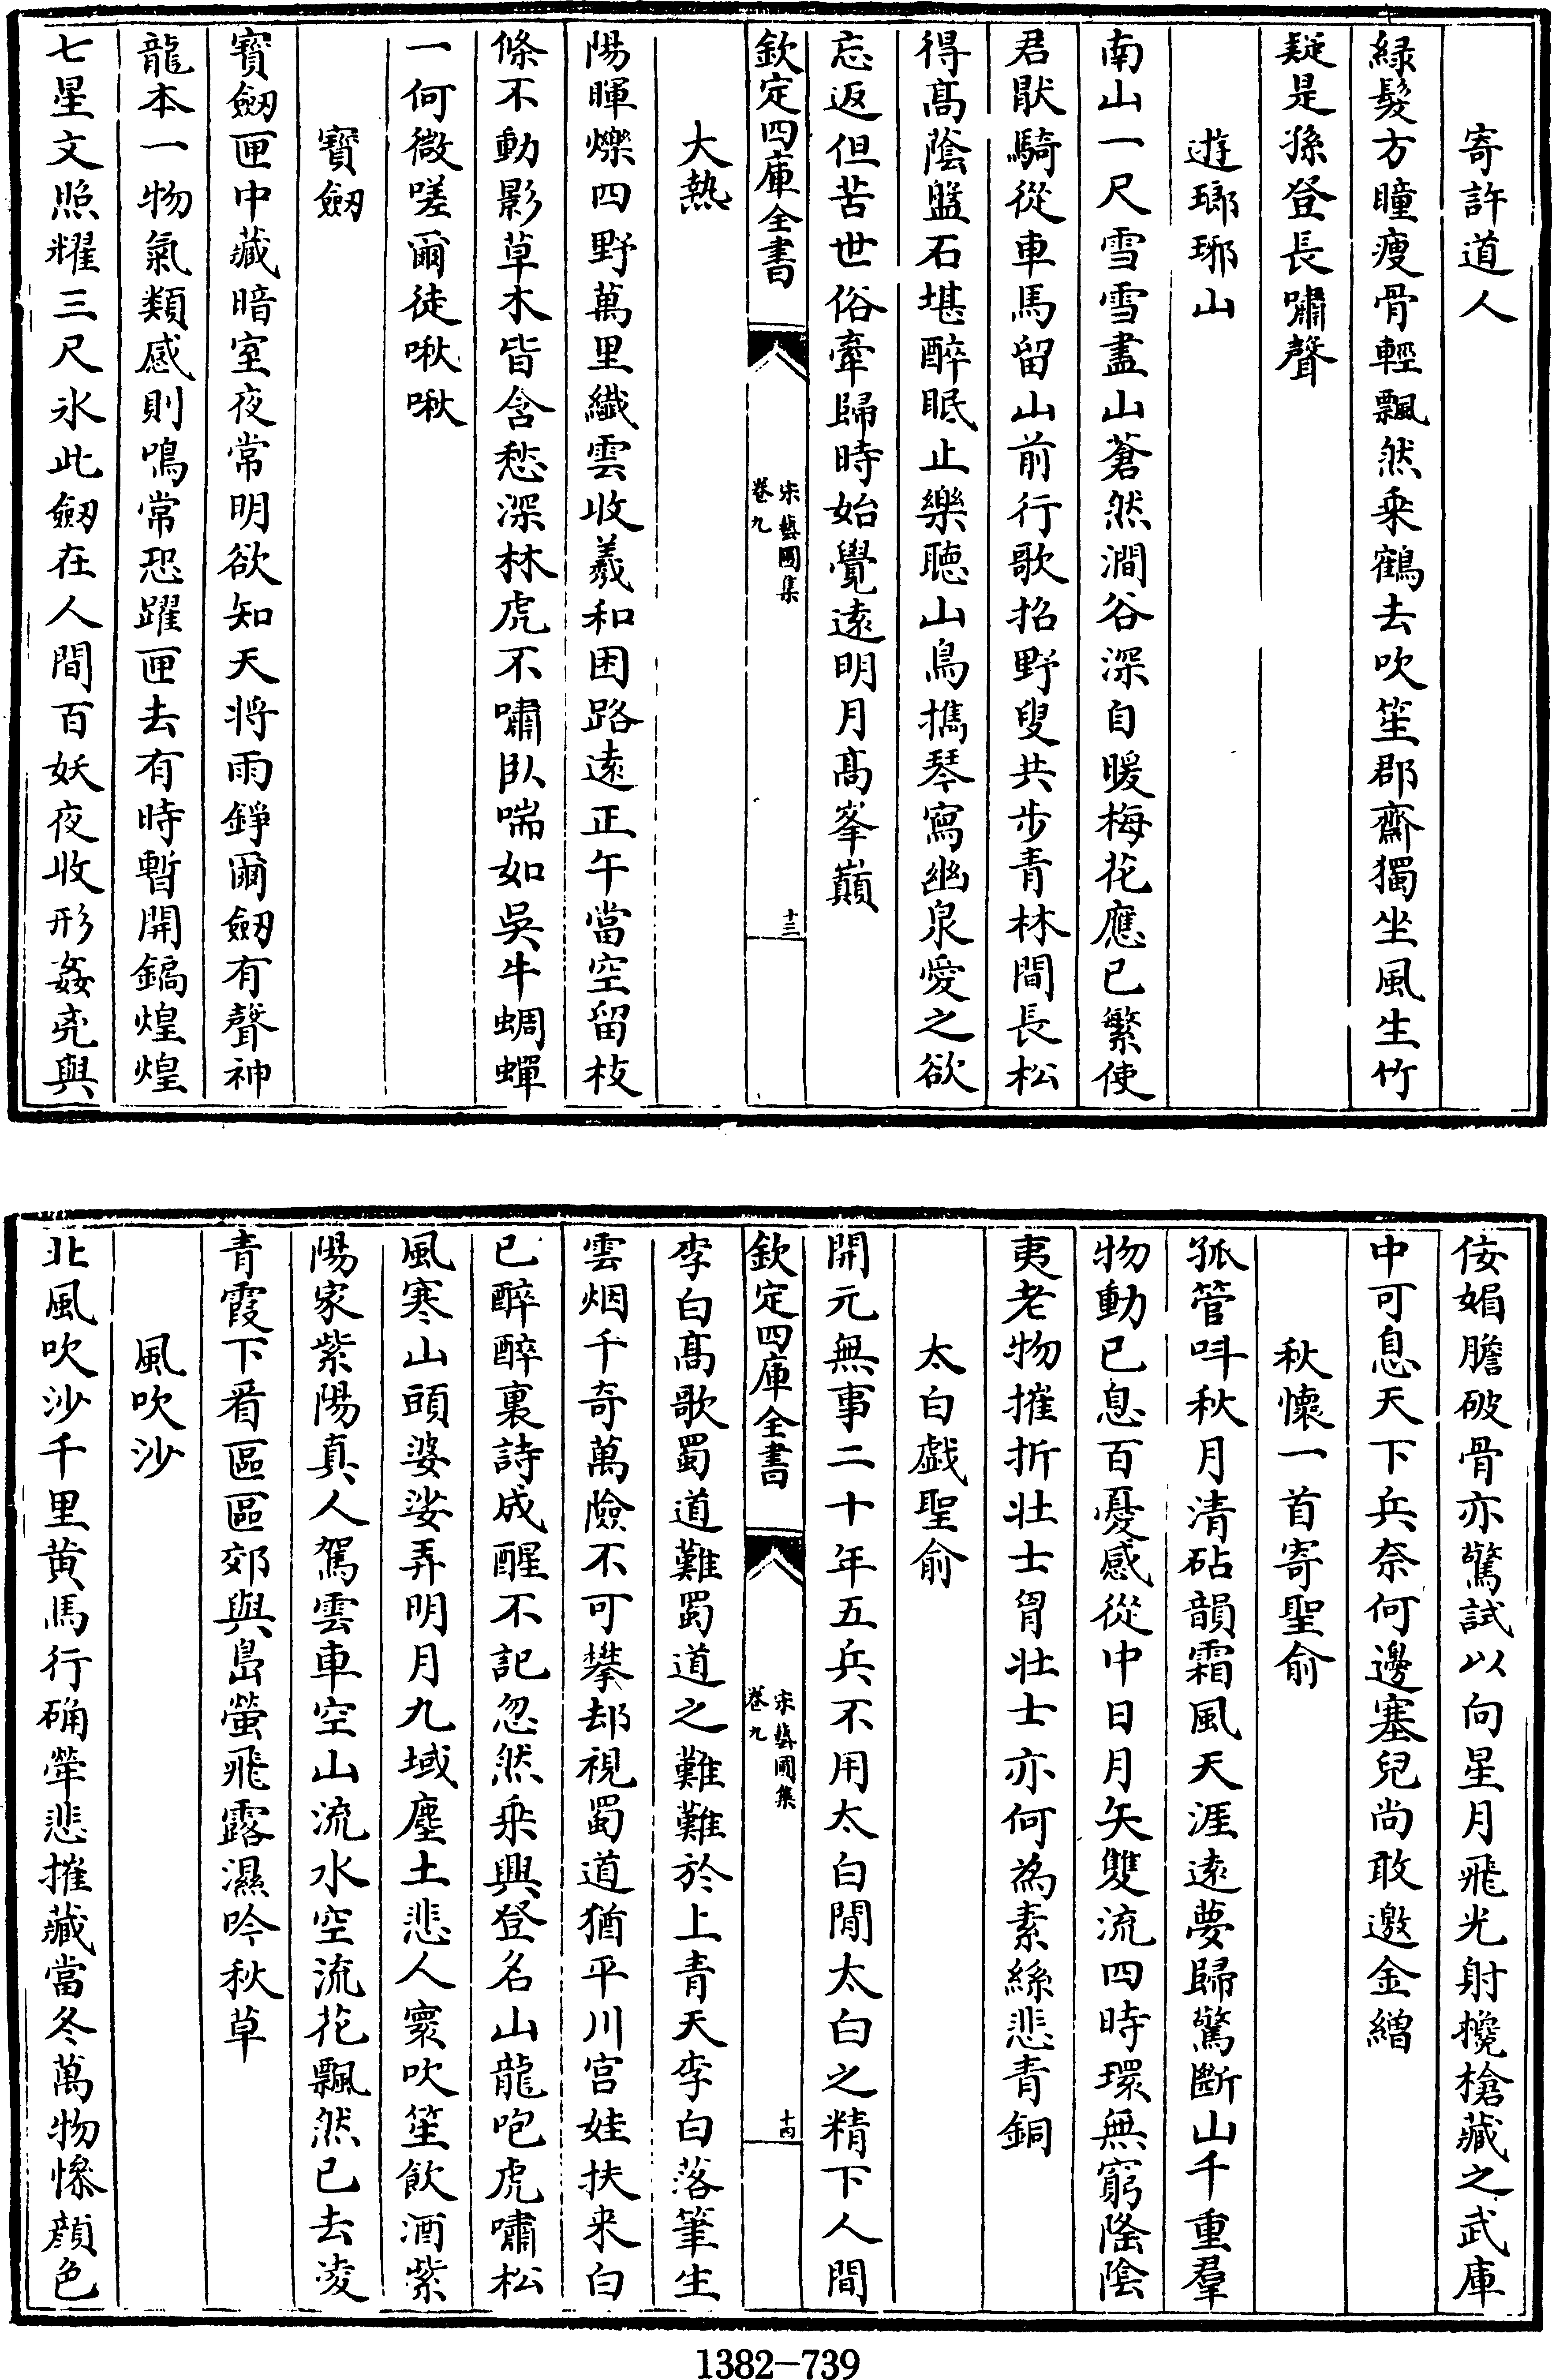 寄許道人
緑髮方瞳瘦骨輕飄然乘鶴去吹笙郡齋獨坐風生竹
疑是孫登長嘯聲
遊瑯琊山
南山一尺雪雪盡山蒼然澗谷深自暖梅花應已繁使
君猒騎從車馬留山前行歌招野叟共步青林間長松
得髙蔭盤石堪醉眠止樂聽山鳥擕琴寫幽泉愛之欲
忘返但苦世俗牽歸時始覺逺明月髙峯巔
欽定四庫全書
宋藝圃集
卷九
十三
大熱
陽暉爍四野萬里纎雲收羲和困路逺正午當空留枝
條不動影草木皆含愁深林虎不嘯卧喘如吳牛蜩蟬
一何微嗟爾徒啾啾
寳劔
寳劔匣中藏暗室夜常明欲知天將雨錚爾劔有聲神
龍本一物氣類感則鳴常恐躍匣去有時暫開鐍煌煌
七星文照耀三尺氷此劔在人間百妖夜收形姦兇與
佞媚膽破骨亦驚試以向星月飛光射攙槍藏之武庫
中可息天下兵奈何邊塞兒尚敢邀金繒
秋懷一首寄聖俞
孤管呌秋月清砧韻霜風天涯逺夢歸驚斷山千重羣
物動已息百憂感從中日月矢雙流四時環無窮隂隂
夷老物摧折壯士胷壯士亦何為素絲悲青銅
太白戲聖俞
開元無事二十年五兵不用太白閒太白之精下人間
欽定四庫全書
宋藝圃集
卷九
十四
李白髙歌蜀道難蜀道之難難於上青天李白落筆生
雲烟千奇萬險不可攀却視蜀道猶平川宫娃扶来白
已醉醉裏詩成醒不記忽然乗興登名山龍咆虎嘯松
風寒山頭婆娑弄明月九域塵土悲人寰吹笙飲酒紫
陽家紫陽真人駕雲車空山流水空流花飄然已去凌
青霞下看區區郊與島螢飛露濕吟秋草
風吹沙
北風吹沙千里黄馬行确犖悲摧藏當冬萬物慘顔色
1382-739